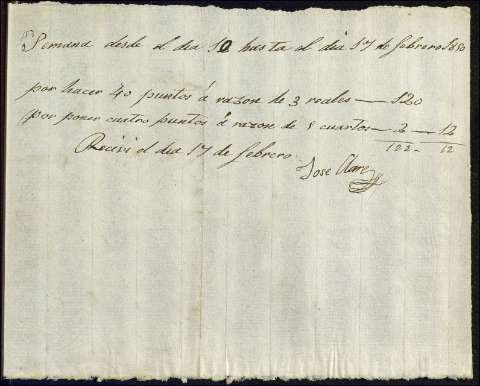 Semana desde el dia 10 hasta el dia 17 de febrero 1850
por hacer 40 puntos á razon de 3 reales — 120
por poner cuatro puntos á razon de 8 cuartos — 2 — 12
122 - 12
Recivi el dia 17 de febrero
Jose